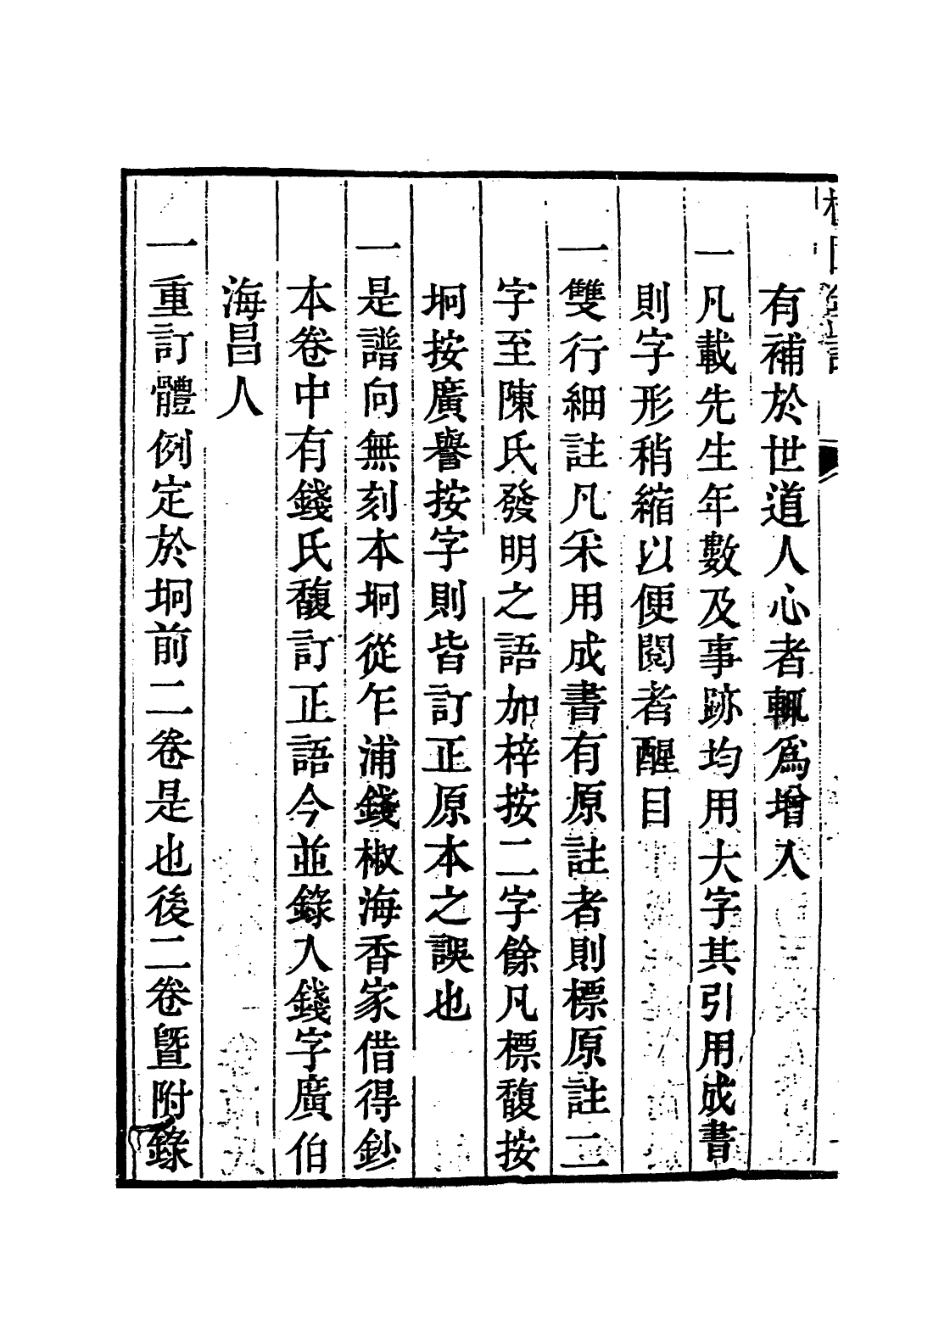 有補於世道人心者輒爲增入
一凡載先生年數及事跡均用大字其引用成書
則字形稍縮以便閱者醒目
一雙行細註凡采用成書有原註者則標原註二
字至陳氏發明之語加梓按二字餘凡標馥按
坰按廣譽按字則皆訂正原本之誤也
一是譜向無刻本坰從乍浦錢椒海香家借得鈔
本卷中有錢氏馥訂正語今並錄入錢字廣伯
海昌人
一重訂體例定於坰前二卷是也後二卷暨附錄